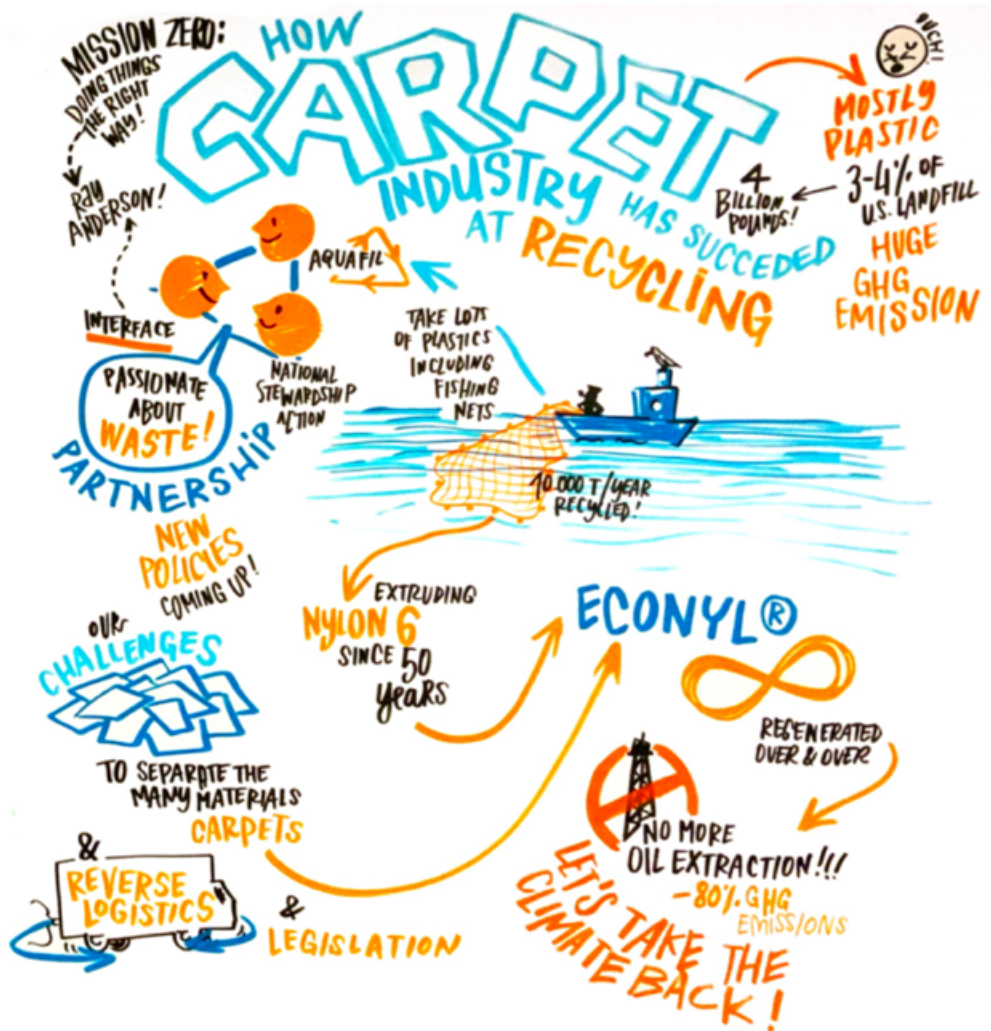 MISSION ZERO:
DOING THINGS
THE RIGHT
WAY!
RAY
ANDERSON!
HOW
CARPET
INDUSTRY HAS SUCCEDED
AT RECYCLING
OUCH!
MOSTLY
PLASTIC
3-4% OF
U.S. LANDFILL
4
BILLION
POUNDS!
HUGE
GHG
EMISSION
AQUAFIL
INTERFACE
NATIONAL
STEWARDSHIP
ACTION
PASSIONATE
ABOUT
WASTE!
PARTNERSHIP
TAKE LOTS
OF PLASTICS
INCLUDING
FISHING
NETS
10.000 T/YEAR
RECYCLED!
NEW
POLICIES
COMING UP!
EXTRUDING
NYLON 6
SINCE 50
YEARS
ECONYL®
REGENERATED
OVER & OVER
OUR
CHALLENGES
TO SEPARATE THE
MANY MATERIALS
CARPETS
&
REVERSE
LOGISTICS
&
LEGISLATION
NO MORE
OIL EXTRACTION!!!
-80% GHG
EMISSIONS
LET'S TAKE THE
CLIMATE BACK!